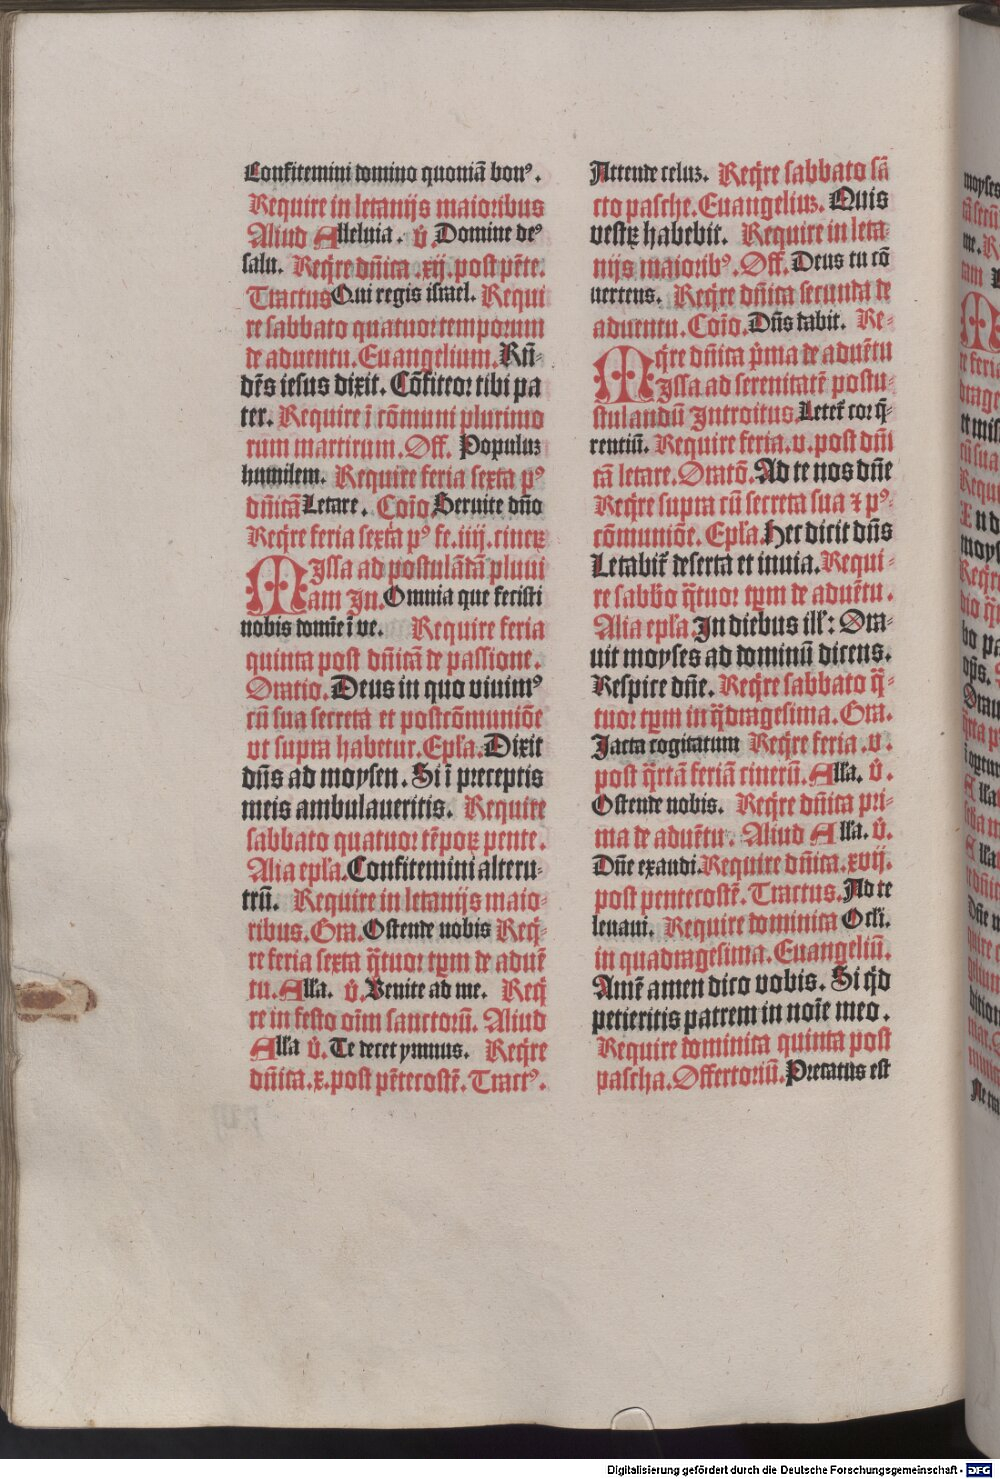 Confitemini domino quoniā bonꝰ.
Require in letanijs maioribus
Aliud Alleluia. v̄. Domine deꝰ
salu. Req̄re dn̄ica .xij. post pēte.
Tractus Qui regis israel. Requi
re sabbato quatuor temporum
de aduentu. Euangelium. Rn̄-
dēs iesus dixit. Cōfiteor tibi pa
ter. Require ī cōmuni plurimo
rum martirum. Off. Populuz
humilem. Require feria sexta pꝰ
dn̄icā Letare. Cōio Seruite dn̄o
Req̄re feria sexta pꝰ fe. iiij. cineꝝ
Missa ad postulādā pluui
am In. Omnia que fecisti
nobis domīe ī ve. Require feria
quinta post dn̄icā de passione.
Oratio. Deus in quo viuimꝰ
cū sua secreta et postcōmuniōe
vt supra habetur. Epl̄a. Dixit
dn̄s ad moysen. Si ī preceptis
meis ambulaueritis. Require
sabbato quatuor tēpoꝝ pente.
Alia epl̄a. Confitemini alteru-
trū. Require in letanijs maio-
ribus. Gra. Ostende nobis Req̄-
re feria sexta q̄tuor tp̄m de aduē
tu. All̄a. v̄. Venite ad me. Req̄
re in festo oīm sanctorū. Aliud
All̄a v̄. Te decet ymnus. Req̄re
dn̄ica .x. post pētecostē. Tractꝰ.
Attende celuz. Req̄re sabbato sā
cto pasche. Euangeliuz. Quis
vestꝝ habebit. Require in leta-
nijs maioribꝰ. Off. Deus tu cō
uertens. Req̄re dn̄ica secunda de
aduentu. Cōio. Dn̄s dabit. Re-
q̄re dn̄ica p̄ma de aduētu
Missa ad serenitatē postu-
stulandū Introitus. Letet̄ cor q̄-
rentiū. Require feria .v. post dn̄i
cā letare. Oratō. Ad te nos dn̄e
Req̄re supra cū secreta sua ⁊ pꝰ-
cōmuniōe. Epl̄a. Hec dicit dn̄s
Letabit̄ deserta et inuia. Requi-
re sabb̄o q̄tuor tp̄m de aduētu.
Alia epl̄a. In diebus ill̄: Ora-
uit moyses ad dominū dicens.
Respice dn̄e. Req̄re sabbato q̄-
tuor tp̄m in q̄dragesima. Gra.
Iacta cogitatum Req̄re feria .v.
post q̄rtā feriā cinerū. All̄a. v̄.
Ostende nobis. Req̄re dn̄ica pri-
ma de aduētu. Aliud All̄a. v̄.
Dn̄e exaudi. Require dn̄ica. xvij.
post pentecostē. Tractus. Ad te
leuaui. Require dominica Ocl̄i.
in quadragesima. Euangeliū.
Amē amen dico vobis. Si q̄d
petieritis patrem in noīe meo.
Require dominica quinta post
pascha. Offertoriū. Precatus est
Digitalisierung gefördert durch die Deutsche Forschungsgemeinschaft - DFG